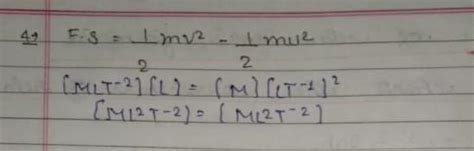 49 F.S = 1/2 mv² - 1/2 mu²
[MLT⁻²][L] = [M][LT⁻¹]²
[ML²T⁻²) = [ML²T⁻²]